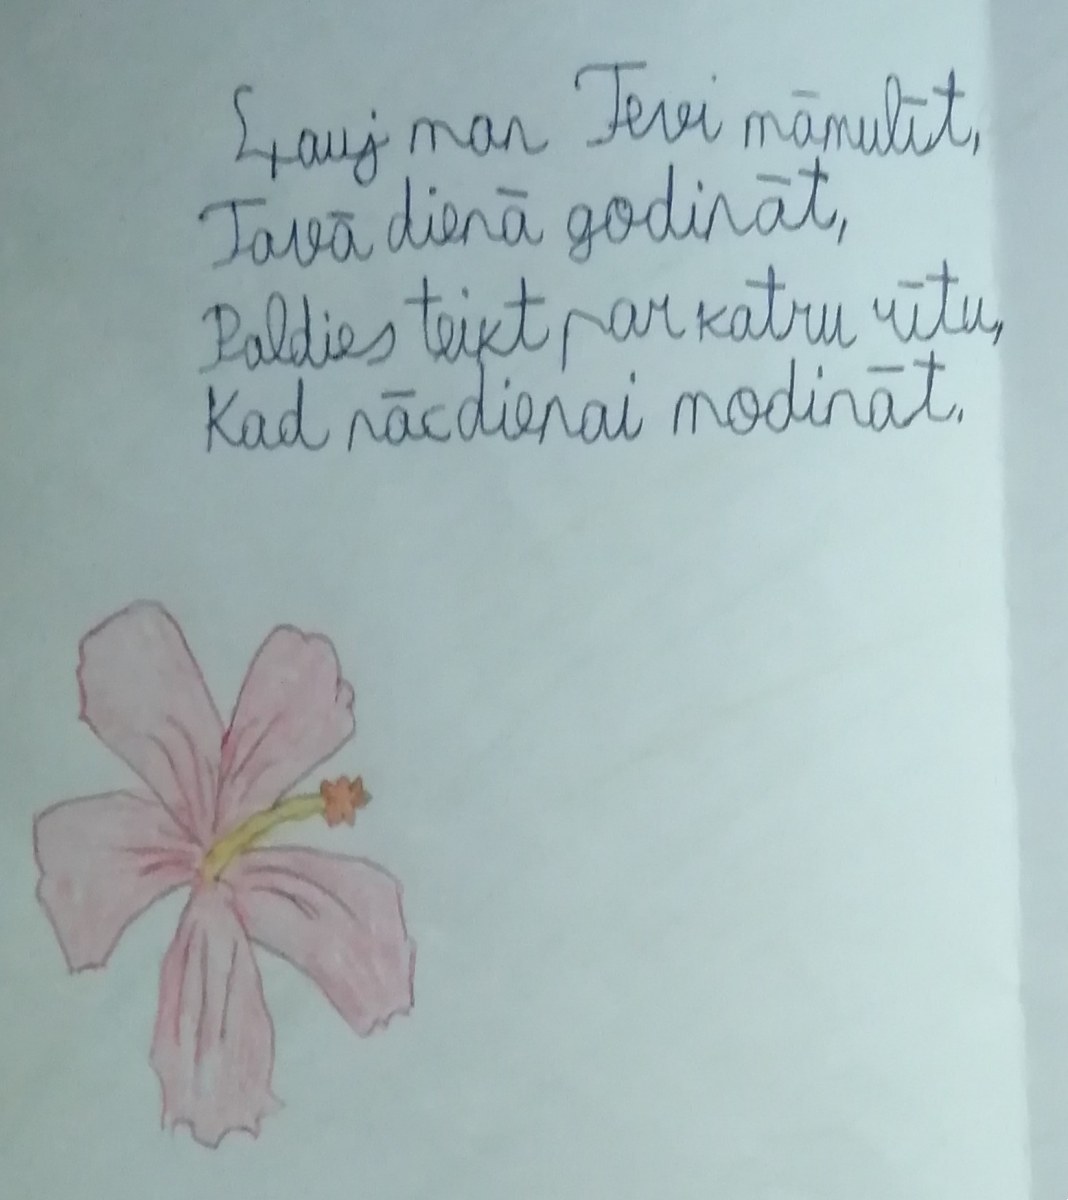 Ļauj man Tevi māmulīt,
Tavā dienā godināt,
Paldies teikt par katru rītu,
Kad nāc dienai modināt.